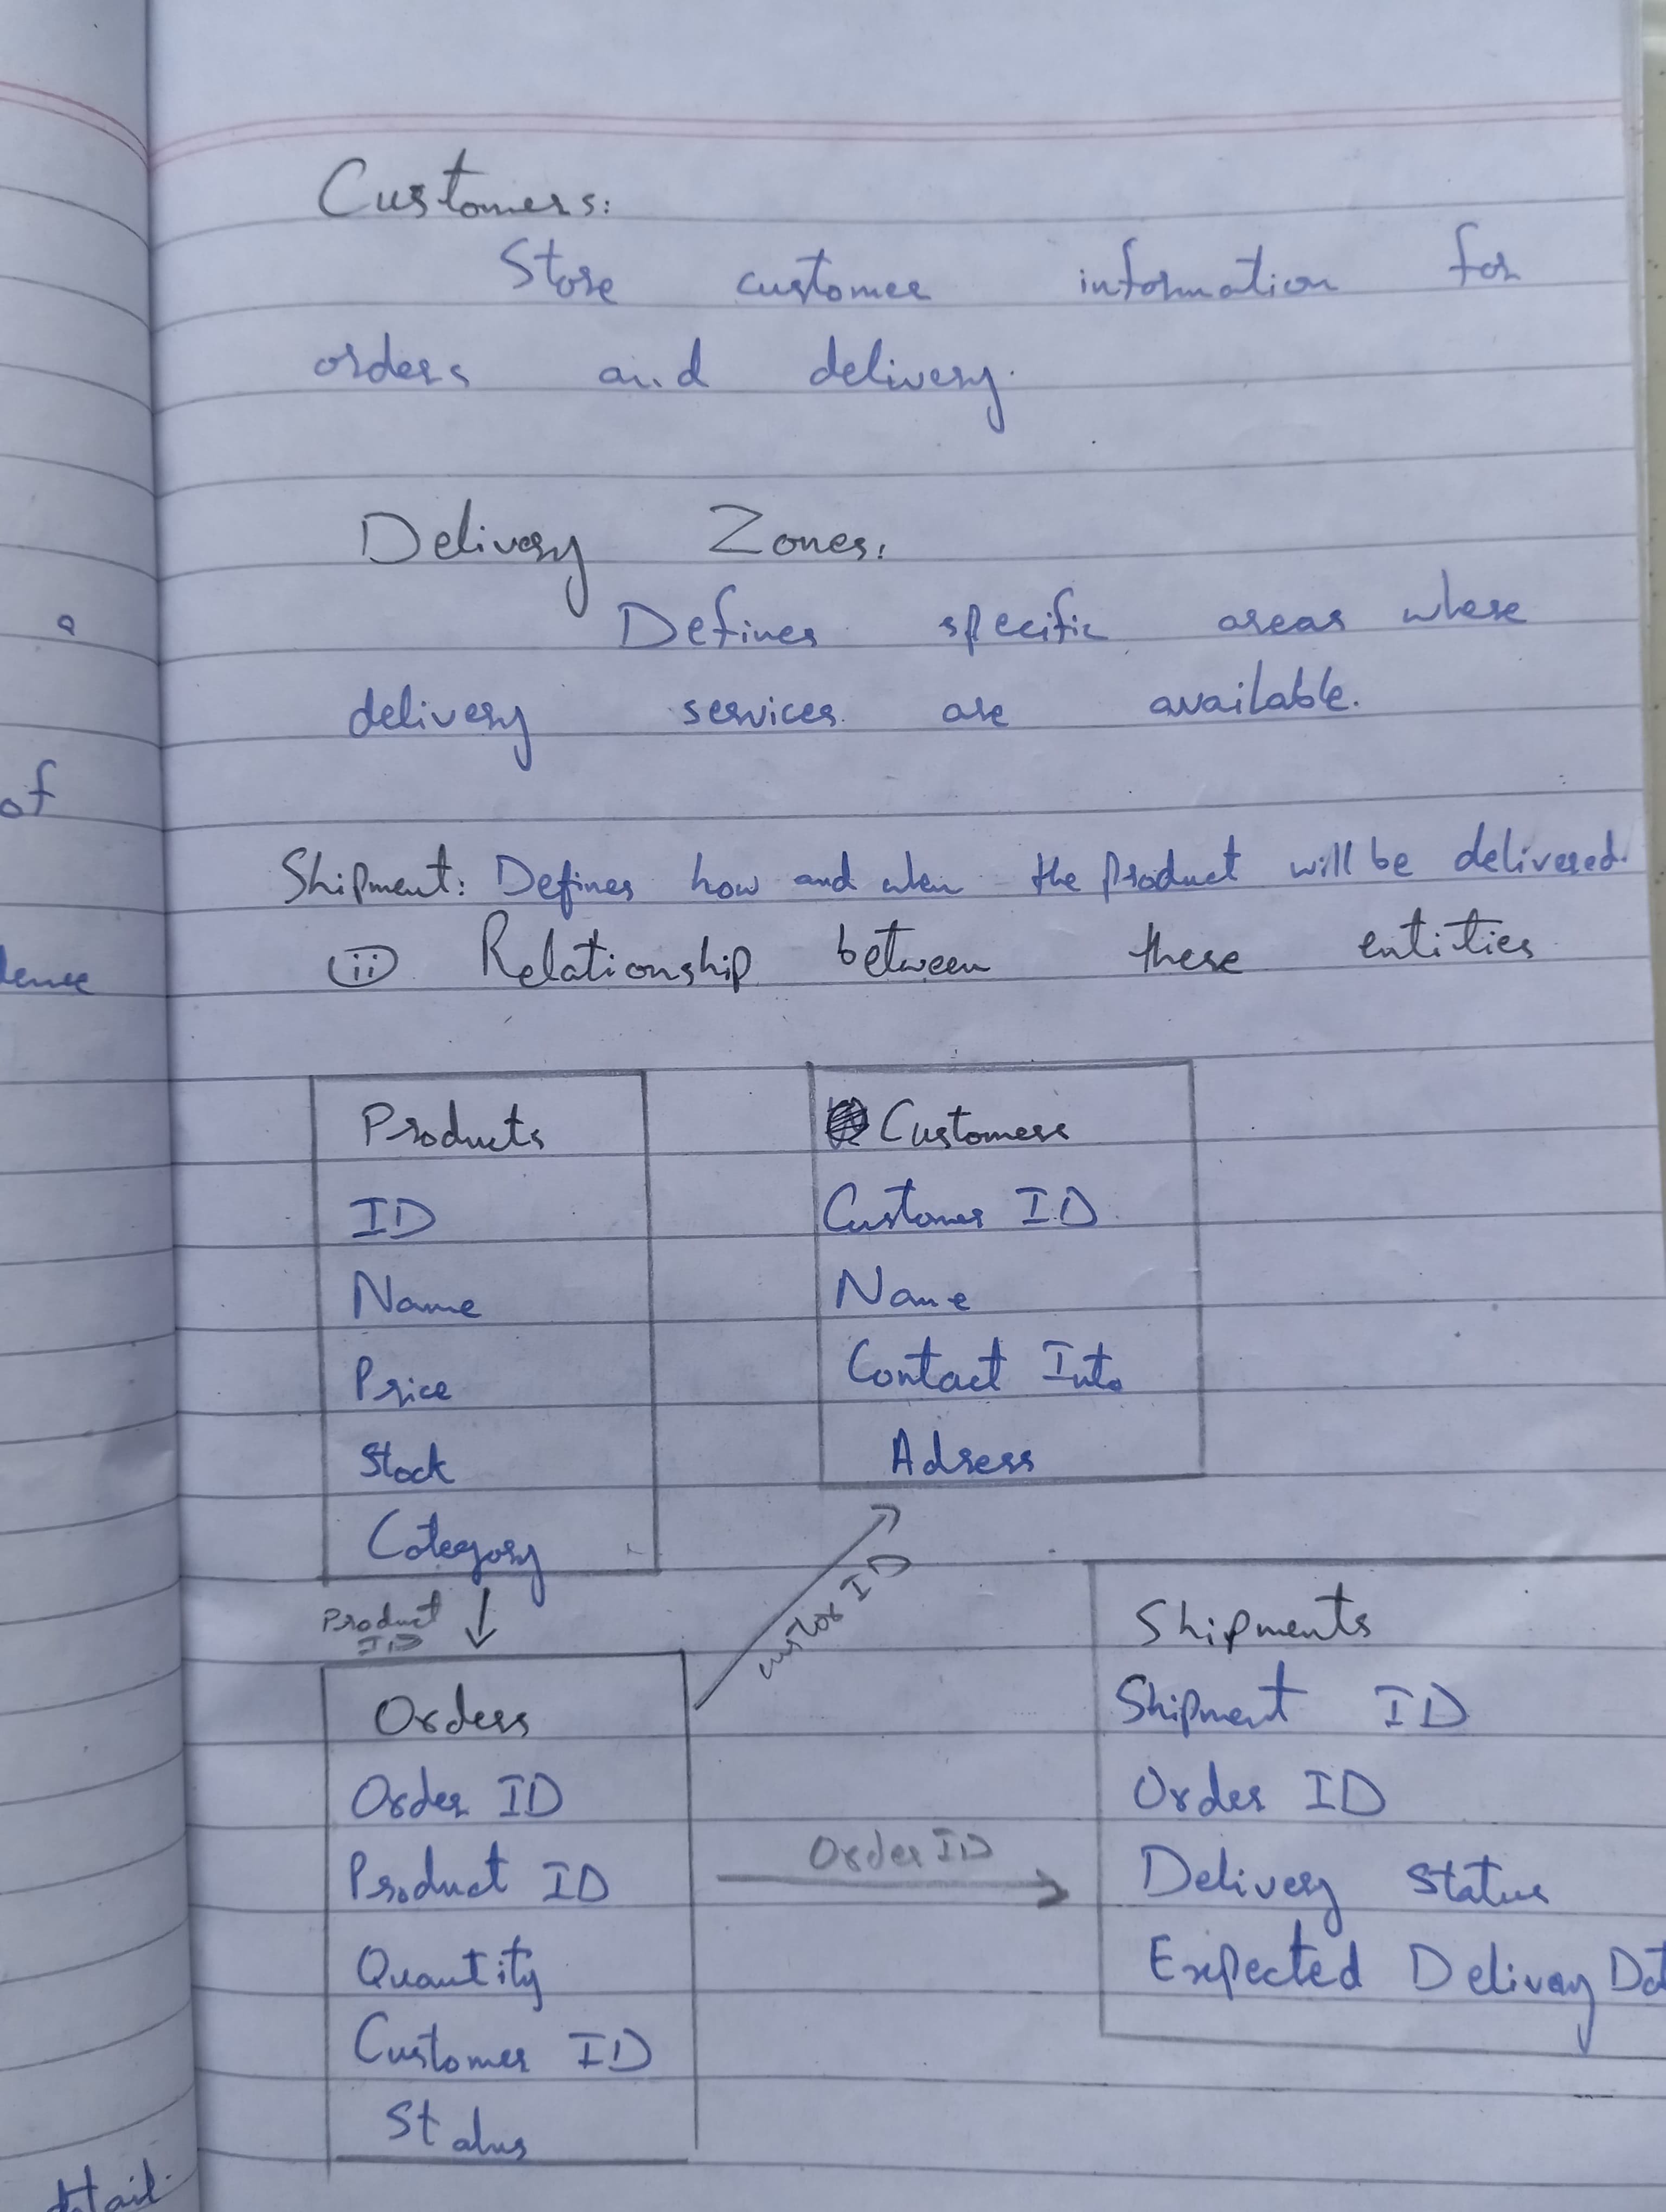 Customers:
Store customer information for
orders and delivery.
Delivery Zones:
Defines specific areas where
delivery services are available.
Shipment: Defines how and when the product will be delivered.
(ii) Relationship between these entities
Products
ID
Name
Price
Stock
Category
Customers
Customer ID
Name
Contact Info
Adress
Product
ID
Orders
Order ID
Product ID
Quantity
Customer ID
Status
ID
Order ID
Shipments
Shipment ID
Order ID
Delivery Status
Expected Delivery Dat
a
of
detail.